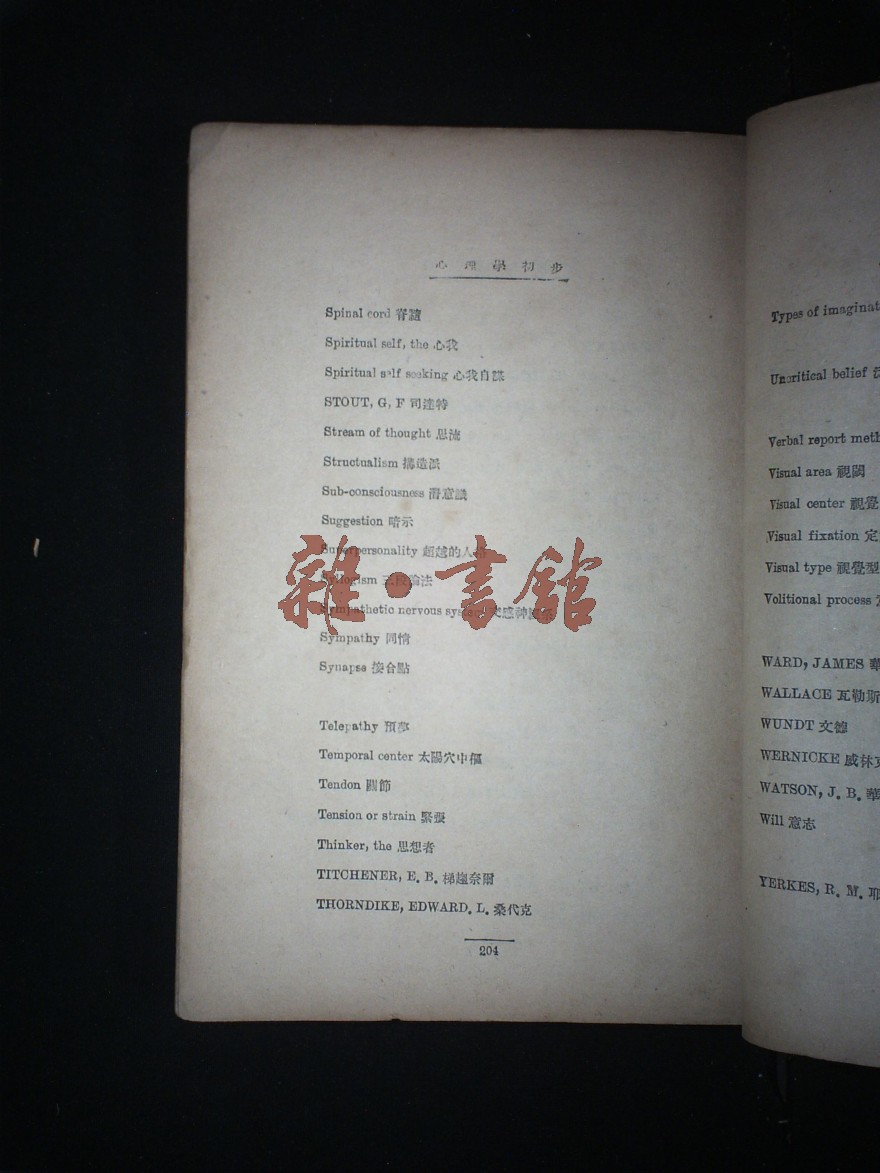 心理學初步
Spinal cord 脊髓
Spiritual self, the 心我
Spiritual self seeking 心我自謀
STOUT, G, F 司達特
Stream of thought 思流
Structualism 構造派
Sub-consciousness 潛意識
Suggestion 暗示
Superpersonality 超越的人格
論法
Sympathetic nervous 交感神經系
Sympathy 同情
Synapse 接合點
Telepathy 預夢
Temporal center 太陽穴中樞
Tendon 關節
Tension or strain 緊張
Thinker, the 思想者
TITCHENER, E. B. 梯趨奈爾
THORNDIKE, EDWARD. L. 桑代克
204
雜·書館
Types of imaginat
Uncritical belief
Verbal report meth
Visual area 視閾
Visual center 視覺
Visual fixation 定
Visual type 視覺型
Volitional process
WARD, JAMES 華
WALLACE 瓦勒斯
WUNDT 文德
WERNICKE 威林克
WATSON, J. B. 華
Will 意志
YERKES, R. M. 耶